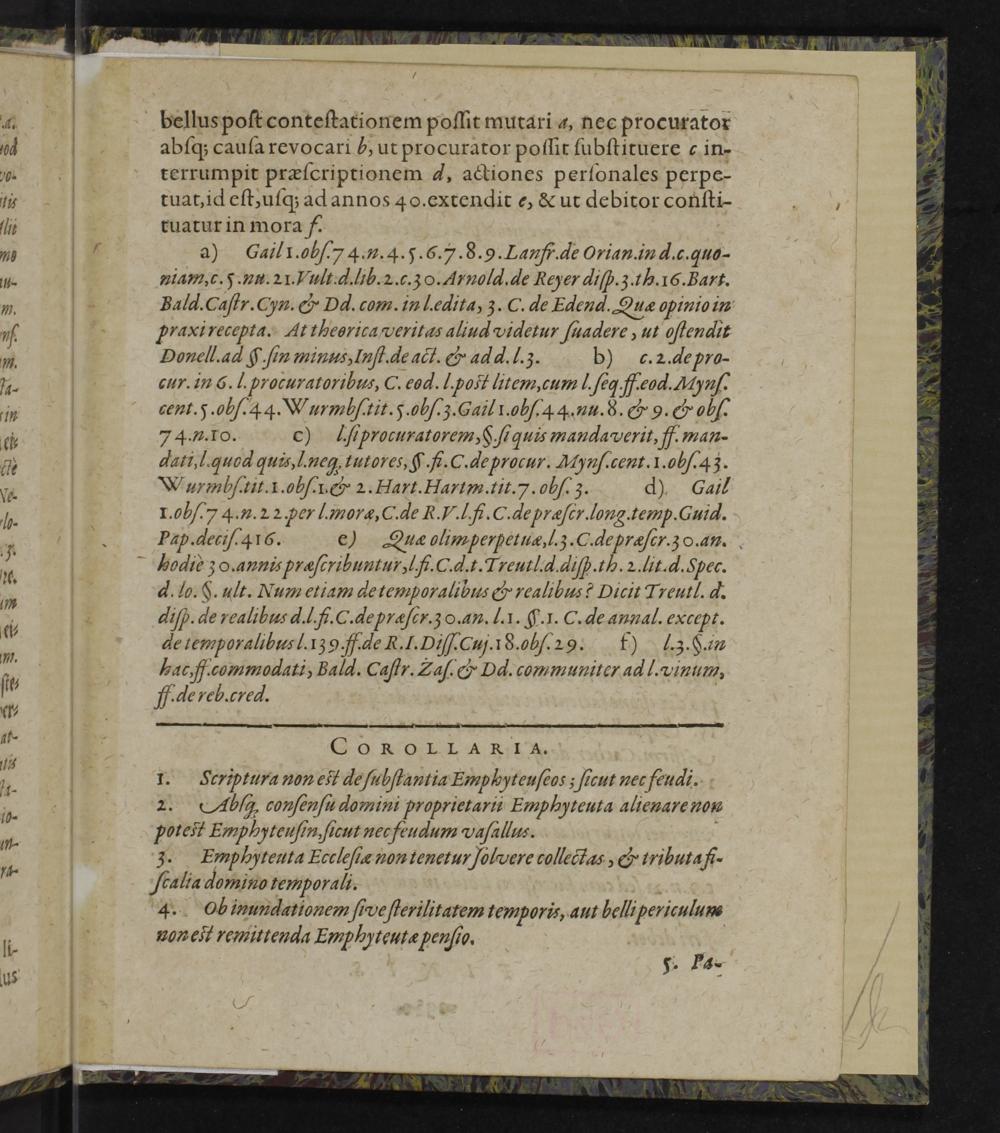 bellus post contestationem possit mutari a, nec procurator
absq; causa revocari b, ut procurator possit substituere c in-
terrumpit præscriptionem d, actiones personales perpe-
tuat, id est, usq; ad annos 40. extendit e, & ut debitor consti-
tuatur in mora f.
a) Gail 1. obs. 74. n. 4. 5. 6. 7. 8. 9. Lanfr. de Orian. in d. c. quo-
niam, c. 5. nu. 21. Vult. d. lib. 2. c. 30. Arnold. de Reyer disp. 3. th. 16. Bart.
Bald. Castr. Cyn. & Dd. com. in l. edita, 3. C. de Edend. Quæ opinio in
praxi recepta. At theorica veritas aliud videtur suadere, ut ostendit
Donell. ad §. sin minus, Inst. de act. & ad d. l. 3. b) c. 2. de pro-
cur. in 6. l. procuratoribus, C. eod. l. post litem, cum l. seq. ff. eod. Myns.
cent. 5. obs. 44. Wurmbs. tit. 5. obs. 3. Gail 1. obs. 44. nu. 8. & 9. & obs.
74. n. 10. c) l. si procuratorem, §. si quis mandaverit, ff. man-
dati, l. quod quis, l. neq; tutores, §. fi. C. de procur. Myns. cent. 1. obs. 43.
Wurmbs. tit. 1. obs. 1. & 2. Hart. Hartm. tit. 7. obs. 3. d) Gail
1. obs. 74. n. 22. per l. moræ, C. de R. V. l. fi. C. de præscr. long. temp. Guid.
Pap. decis. 416. e) Quæ olim perpetuæ, l. 3. C. de præscr. 30. an.
hodiè 30. annis præscribuntur, l. fi. C. d. t. Treutl. d. disp. th. 2. lit. d. Spec.
d. lo. §. ult. Num etiam de temporalibus & realibus? Dicit Treutl. d.
disp. de realibus d. l. fi. C. de præscr. 30. an. l. 1. §. 1. C. de annal. except.
de temporalibus l. 139. ff. de R. I. Diss. Cuj. 18. obs. 29. f) l. 3. §. in
hac, ff. commodati, Bald. Castr. Zas. & Dd. communiter ad l. vinum,
ff. de reb. cred.
COROLLARIA.
1. Scriptura non est de substantia Emphyteuseos; sicut nec feudi.
2. Absq; consensu domini proprietarii Emphyteuta alienare non
potest Emphyteusin, sicut nec feudum vasallus.
3. Emphyteuta Ecclesiæ non tenetur solvere collectas, & tributa fi-
scalia domino temporali.
4. Ob inundationem sive sterilitatem temporis, aut belli periculum
non est remittenda Emphyteutæ pensio.
5. Pa-